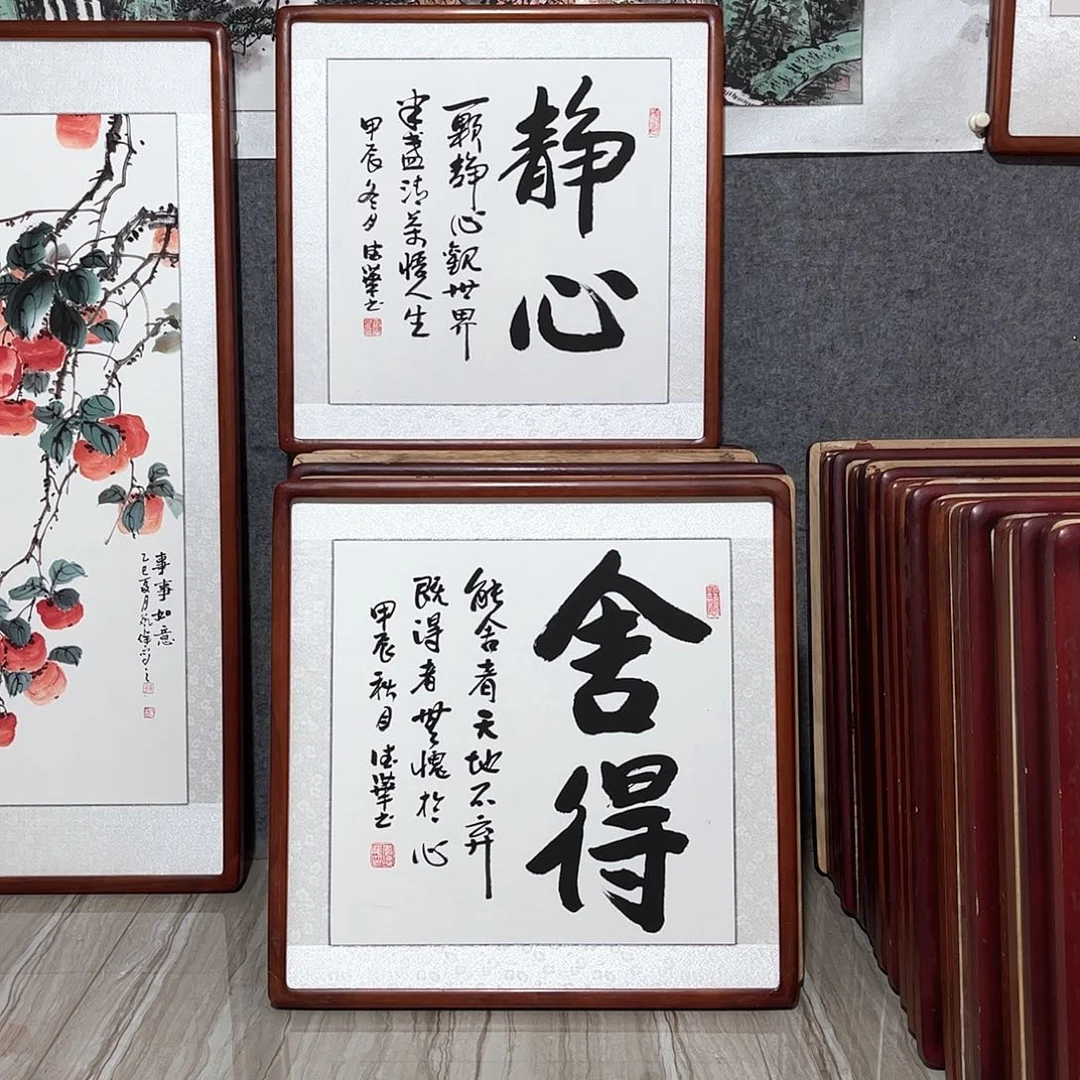 静心
一顆静心觀世界
半盏清茶悟人生
甲辰冬月德華书
舍得
能舍者天地不弃
既得者無愧於心
甲辰秋月德華书
事事如意
乙巳夏月